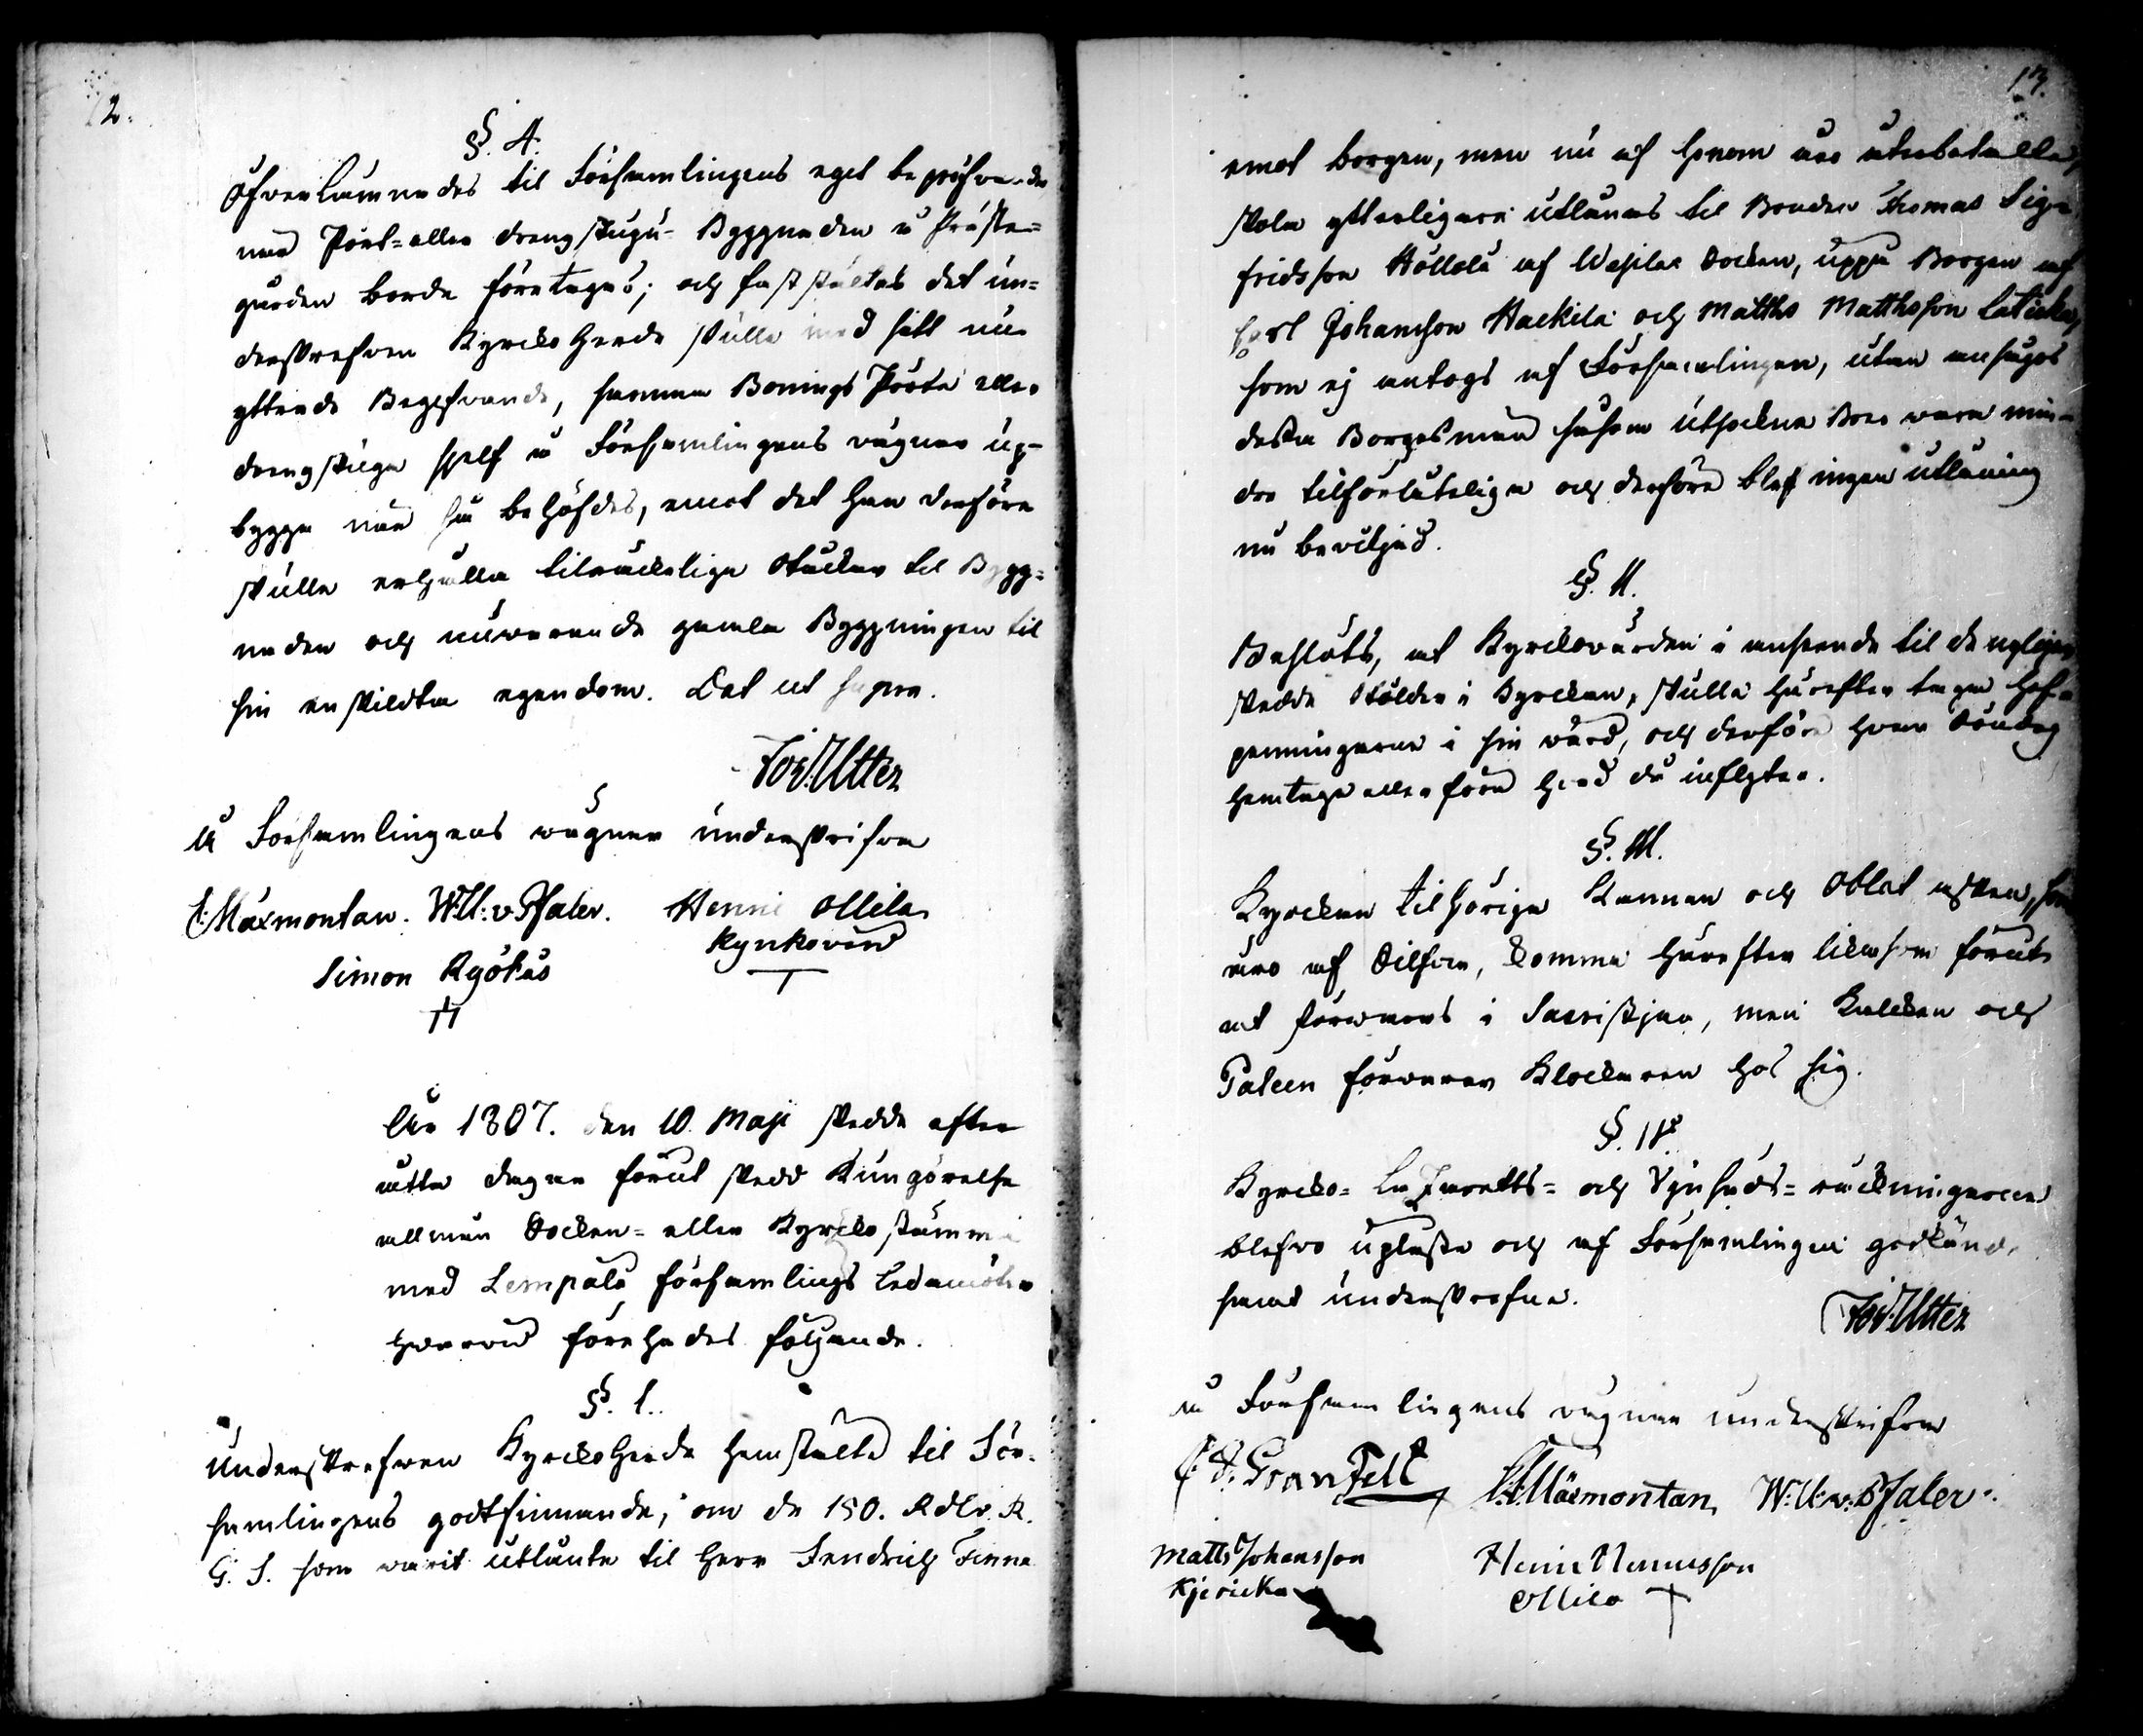 2.
§. 4.
Öfverlämnades til Församlingens eget bepröfvande
när Pört- eller drengstugu- Byggnaden å Präste-
gården borde företagas; och fastställtes det un-
derskrefven Kyrckoherde skulle med sitt nu
yttrade Begifvande, samma Bonings Pörte eller
drengstuga sjelf å Församlingens vägnar up-
bygga när så behöfdes, emot det han derföre
skulle erhålla tilräckeliga Stockar til Bygg-
naden och nuvarande gamla Byggningen til
sin enskildta egendom. Dat ut supra.
Joh. Utter
å Församlingens wägnar underskrifva
C. Märmontan. W:U: v Pfaler. Henric Ollila
Kyrkovärd
Simon Kyökäs
År 1807. den 10 Maji skedde efter
åtta dagar förut skedd Kungörelse
allmän Socken- eller Kyrckostämma
med Lempälä församlings Ledamöter
hvarvid förehades följande.
§. I.
Underskrefven Kyrckoherde hemstälte til För-
samlingens godtfinnande, om de 150. Rdlr. R.
G. S. som varit utlånte til Herr Fendrich Finne
13.
emot borgen, men nu af honom äro återbetallte,
skola ytterligare utlånas til Bonden Thomas Sig-
fridsson Höllölä af Wesilax Socken, uppå Borgen af
Carl Johansson Hackila och Matths Matthsson
som ej antogs af Församlingen, utan ansågos
dessa Borgesmän såsom utsockne Boer vara min-
dre tilförlåtelige och derföre blef ingen utlåning
nu beviljad.
§. II.
Beslöts, at Kyrckovärden i anseende til de
skedde Stölder i Kyrckan, skulle häreefter taga Håf-
penningarne i sin wård, och derföre hvar Söndag
hemtaga eller föra hvad då inflyter.
§. III.
Kyrckan tilhöriga Kannan och Oblat asken, som
äro af Silfver, komma härefter likasom förut
at förwaras i Sacristjan, men Kalcken och
Paleen förvarar Klockaren hos sig.
§. IV.
Kyrcko- Lazaretts- och Sjuhuds- räckningarne
blefvo uplästa och af Församlingen godkända
samt underskrefne.
Joh. Utter
å Församlingens vägnar underskrifva
C. F. Granfelt C. Märmontan, W:U: v: Pfaler.
Matts Johansson Henric Hennersson
Kjericka Ollila